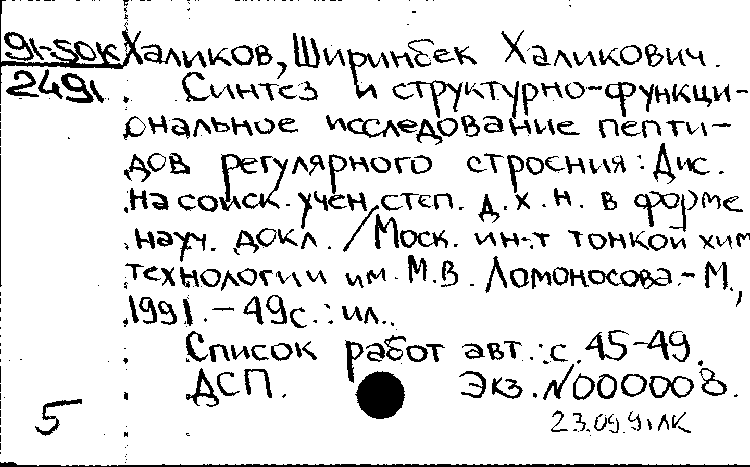 91-5ОК Халиков, Ширинбек Халикович.
2491 Синтез и структурно-функци-
ональное исследование пепти-
дов регулярного строения: Дис.
на соиск. учен. степ. д.х.н. в форме
науч. докл. / Моск. ин-т тонкой хим
технологии им. М.В. Ломоносова.- М.,
1991. – 49с.: ил..
Список работ авт.: с. 45-49.
ДСП. Экз. №000008.
5
23.09.91 ЛК